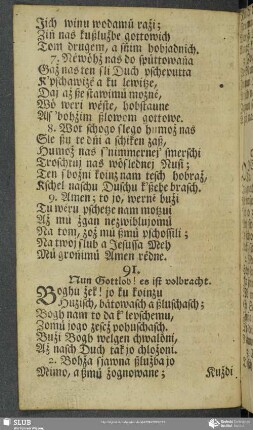 Jich winu wodamü raži;
Ziń nas kußlužbe gottowich
Tom drugem, a sším hobjadnich.
7. Newöhž nas do spüttowaña
Gaž nas ten sli Duch pscheputra
K'pschawizé a ku lewitze,
Daj až ße stawimü možnė,
Wö weri wėste, hobstaune
Als' bohžim ßlowom gottowe.
8. Wot schogo slego humož nas
Sle ßu te dńi a schiken zaß,
Humož nas s'nimmernej' smerschi
Troschtuj nas wößlednej Nusi;
Ten s'bożni koinz nam tesch hobraž,
Kschel naschu Duschu k'ßebe brasch.
9. Amen; to jo, wernė buži
Tu weru pschetze nam mozni
Až mü žgan nezwiblujomü
Na tom, což mü ßmü pschossili;
Na twoj slub a Jesussa Meh
Mü gronimü Amen rėdne.
91.
Nun Gottlob! es ist volbracht.
Boghu žek! jo ku koinzu
Huzisch, batowasch a ßluschasch;
Bogh nam to da k' lepschemu,
Zomü jogo zesčž pohuschasch.
Buži Bogh welgen chwalöni,
Až nasch Duch tak jo chložoni.
2. Bohža sjawna ßlužba jo
Mimo, a ßmü žognowane;
Kuždi
SLUB